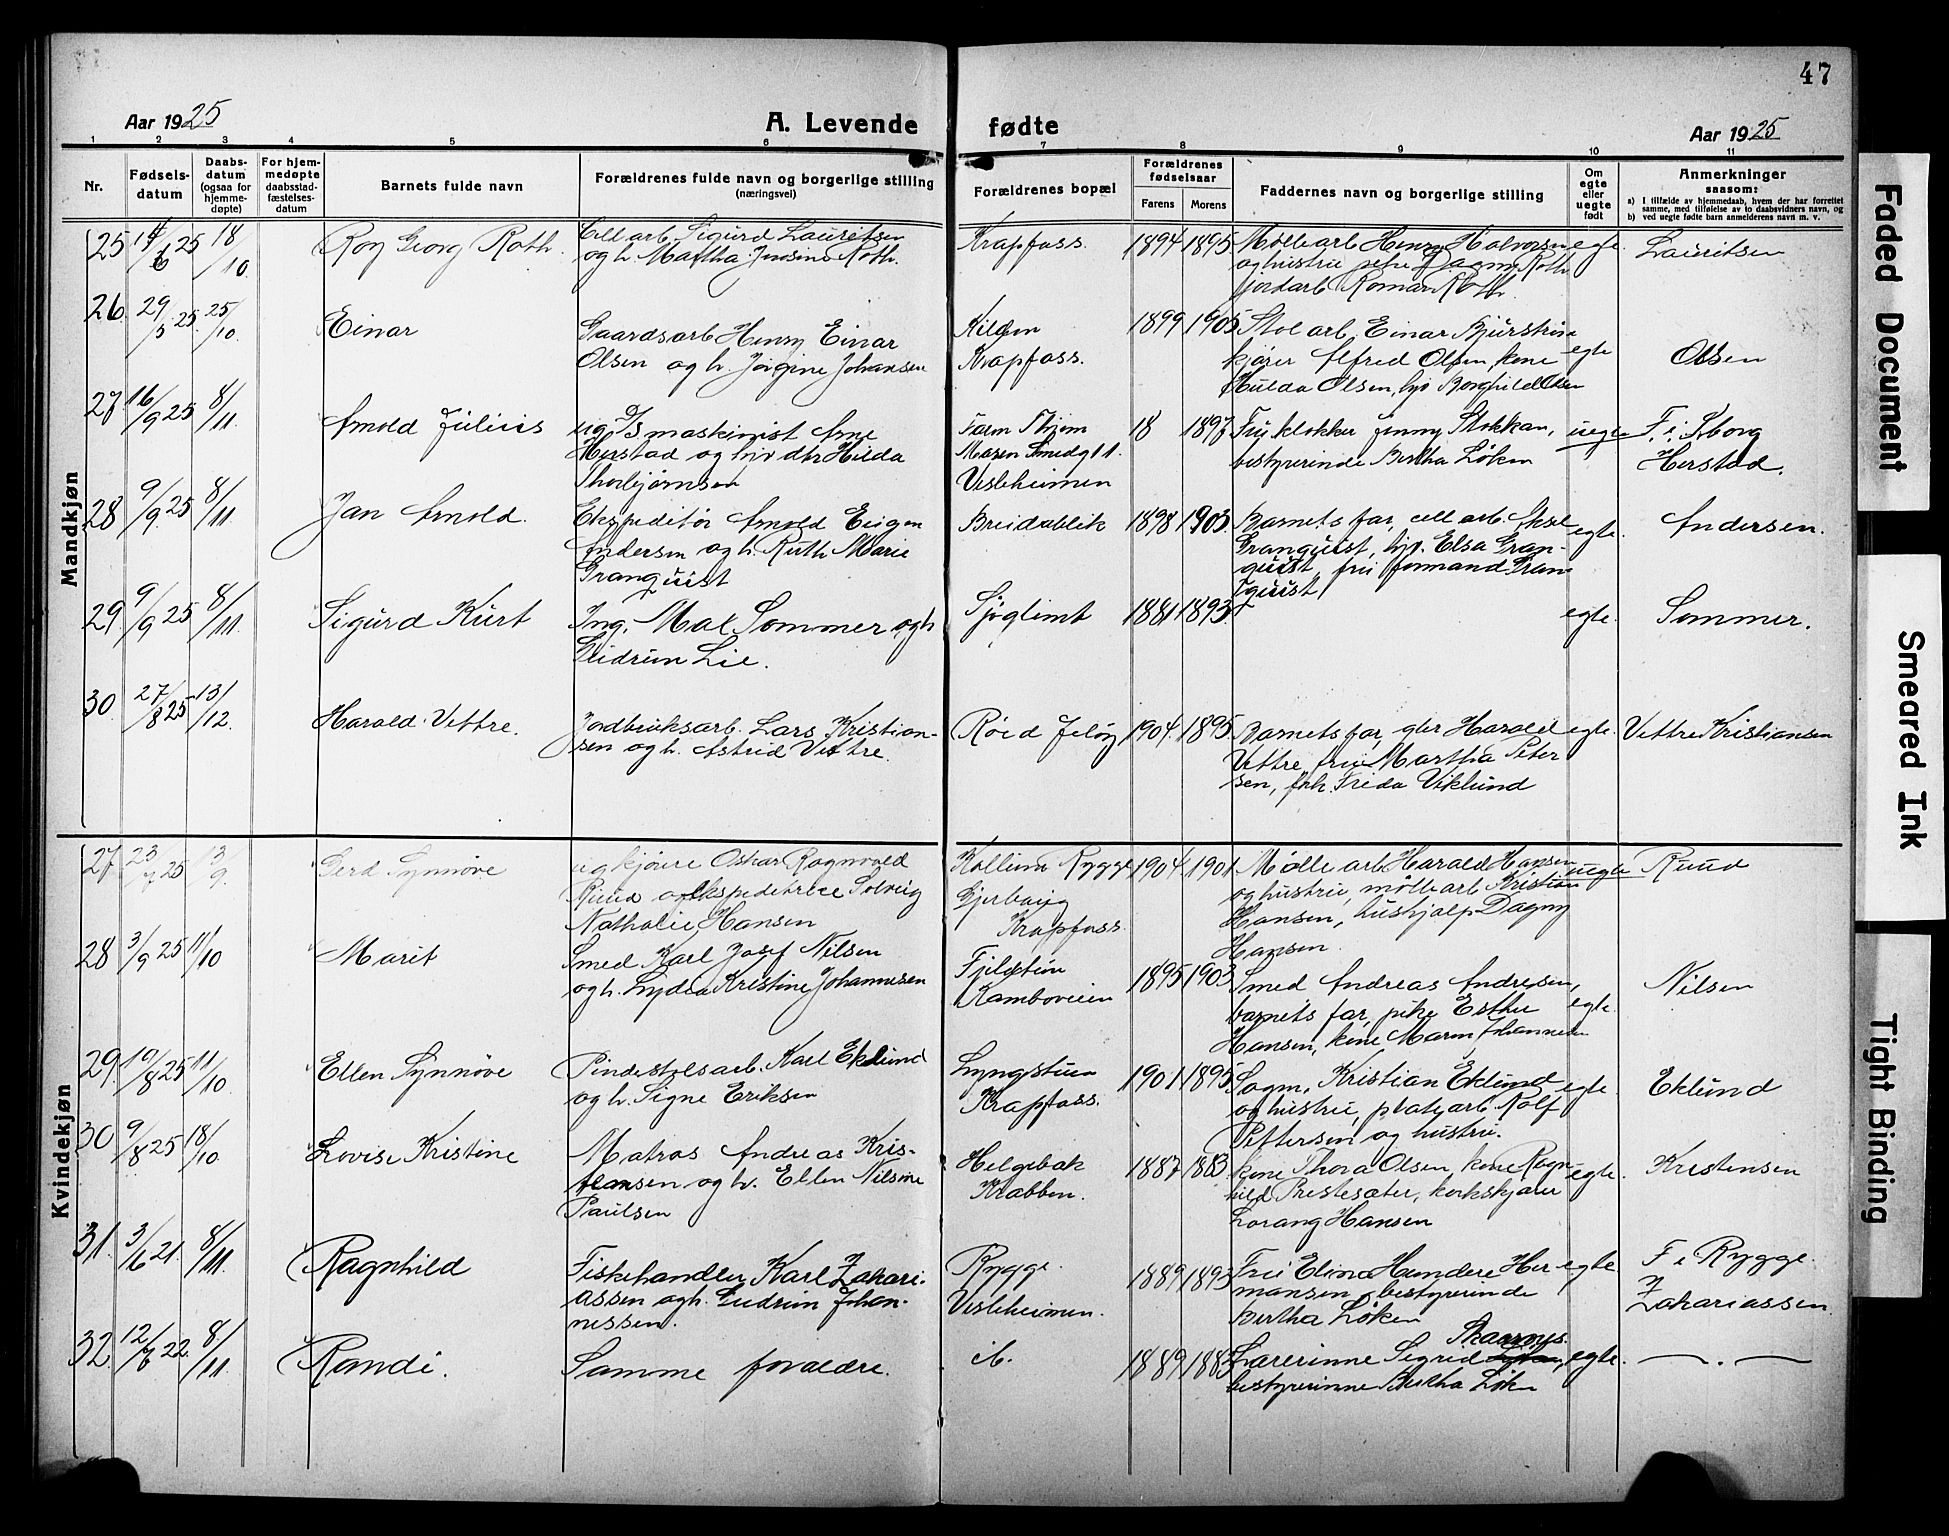 47
Aar 1925
A. Levende fødte
Aar 1925
1 2 3 4 5 6 7 8 9 10 11
Nr.
Fødsels-
datum
Daabs-
datum
(ogsaa for
hjemme-
døpte)
For hjem-
medøpte
daabsstad-
fæstelses-
datum
Barnets fulde navn
Forældrenes fulde navn og borgerlige stilling
(næringsvei)
Forældrenes bopæl
Forældrenes
fødselsaar
Farens Morens
Faddernes navn og borgerlige stilling
Om
egte
eller
uegte
født
Anmerkninger
saasom:
a) I tilfælde av hjemmedaab, hvem der har forrettet
samme, med tilføielse av to daabsvidners navn, og
b) ved uegte fødte barn anmelderens navn m. v.
Mandkjøn
25 14/6 25 18/10 Roy Georg Roth Cell arb. Sigurd Lauritsen
og h. Martha Roth.
Krapfoss. 1894 1895 Møllearb Henry Halvorsen egte. Lauritsen
og hustru, Dagny Roth
jordarb Roman Roth.
26 29/5 25. 25/10. Einar Gaardsarb Henry Einar
Olsen og h. Jørgine Johansen
Kilden
Krapfoss.
1899 1905 Stol arb. Einar
kjører Alfred Olsen, kone egte Olsen
Hulda Olsen, Borghild Olsen
27. 16/9 25 8/11. Arnold Julius ug maskinist Arne
Herstad og Hilda
Thorbjørnsen
Farm Thjøm
Maren Smedg 11.
Vesleheimen
18 1897 Frk klokker Jenny Stokkan, uegte F. i Borg
bestyrerinde Bertha Løken Herstad.
28 9/9 25 8/11. Jan Arnold. Ekspeditør Arnold Eugen
Andersen og h. Ruth Marie
Granquist
Breidablik 1898 1903. Barnets far, cell arb. Aksel egte. Andersen.
Granquist, Elsa Gran-
quist, fru formand Gran-
quist
29 9/9 25 8/11. Sigurd Kurt Ing. Max Sommer og h
Gudrun Lie.
Sjøglimt 1881 1893. egte. Sommer.
30 27/8 25 13/12. Harald Vettre. Jordbruksarb. Lars Kristian-
sen og h. Astrid Vettre.
Røed Jeløy 1904. 1895. Barnets far, gbr Harald egte. Vettre Kristiansen
Vettre, fru Martha Peter
sen, frk. Frida Viklund
Kvindekjøn
27 23/7 25 13/9 Gerd Synnøve ug kjøre Oskar Ragnvald
Ruud og Ekspeditrice Solveig
Nathalie Hansen
Kollum Rygge
Krapfoss.
1904 1901 Mølle arb Harald Hansen uegte Ruud
og hustru, møllearb Kristian
Hansen, hushjælp Dagny
Hansen
28 3/9 25 11/10 Marit Smed Karl Josef Nilsen
og h. Lydia Kristine Johannesen
Fjeldstun
Kamboveien
1895 1903 Smed Andreas Andresen, egte. Nilsen
barnets far, pike Esther
Hansen, kone Johannesen
29. 19/8 25 11/10 Ellen Synnøve Pindestolsarb. Karl Eklund
og h. Signe Eriksen
Lyngstuen
Krapfoss.
1901 1895 Sagm. Kristian Eklund egte. Eklund
og hustru, platearb Rolf
Pettersen og hustru.
30 9/8 25 18/10. Lovise Kristine Matros Andreas Kris-
tensen og h. Ellen Nilsine
Paulsen
Helgebak
Krabben.
1887 1883. kone Thora Olsen, kone Ragn egte. Kristensen
hild Prestesæter, korkskjærer
Lorang Hansen
31. 3/6 21. 8/11. Ragnhild Fiskehandler Karl Zakari-
assen og h. Gudrun Johan-
nessen.
Rygge.
Vesleheimen.
1889 1893 Fru Elina Hundere Her egte. F i Rygge.
mansen, bestyrerinde Zakariassen.
Bertha Løken
32. 12/6 22. 8/11. Randi. Samme forældre. ib. 1889 1883 Lærerinne Sigrid Skaarnys. egte. — . —
bestyrerinne Bertha Løken
Faded Document
Smeared Ink
Tight Binding